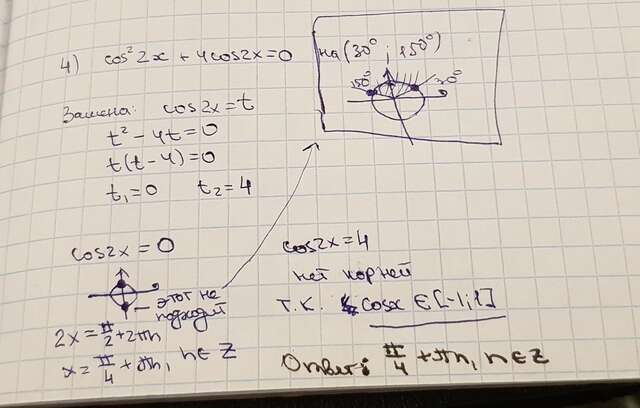 4) cos²2x + 4cos2x = 0
на (30° ; 150°)
150° 30°
Замена: cos2x = t
t² - 4t = 0
t(t - 4) = 0
t₁ = 0 t₂ = 4
cos2x = 0
этот не
подходит
2x = π/2 + 2πn
x = π/4 + πn, n ∈ Z
cos2x = 4
нет корней
т.к. cosx ∈ [-1; 1]
Ответ: π/4 + πn, n ∈ Z